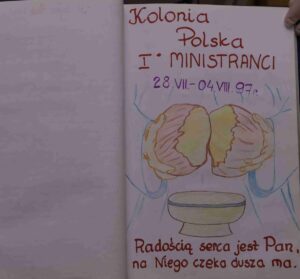 Kolonia
Polska
I° MINISTRANCI
28 VII.-04 VIII. 97r.
Radością serca jest Pan,
na Niego czeka dusza ma.